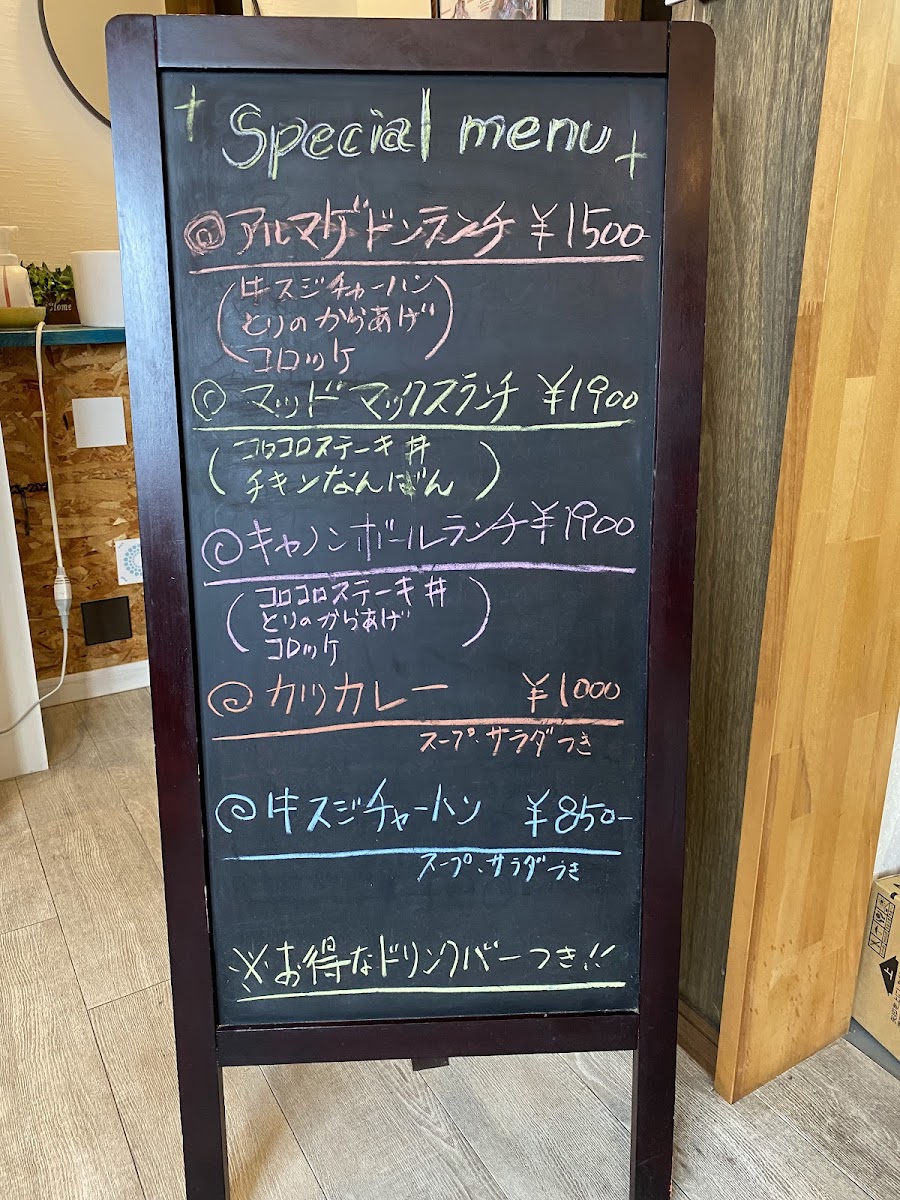 Special menu
アルマゲドンランチ ¥1500-
(牛スジチャーハン
とりのからあげ
コロッケ)
マッドマックスランチ ¥1900
(コロコロステーキ丼
チキンなんばん)
キャノンボールランチ ¥1900
(コロコロステーキ丼
とりのからあげ
コロッケ)
カツカレー ¥1000
スープ、サラダつき
牛スジチャーハン ¥850-
スープ、サラダつき
※お得なドリンクバーつき!!